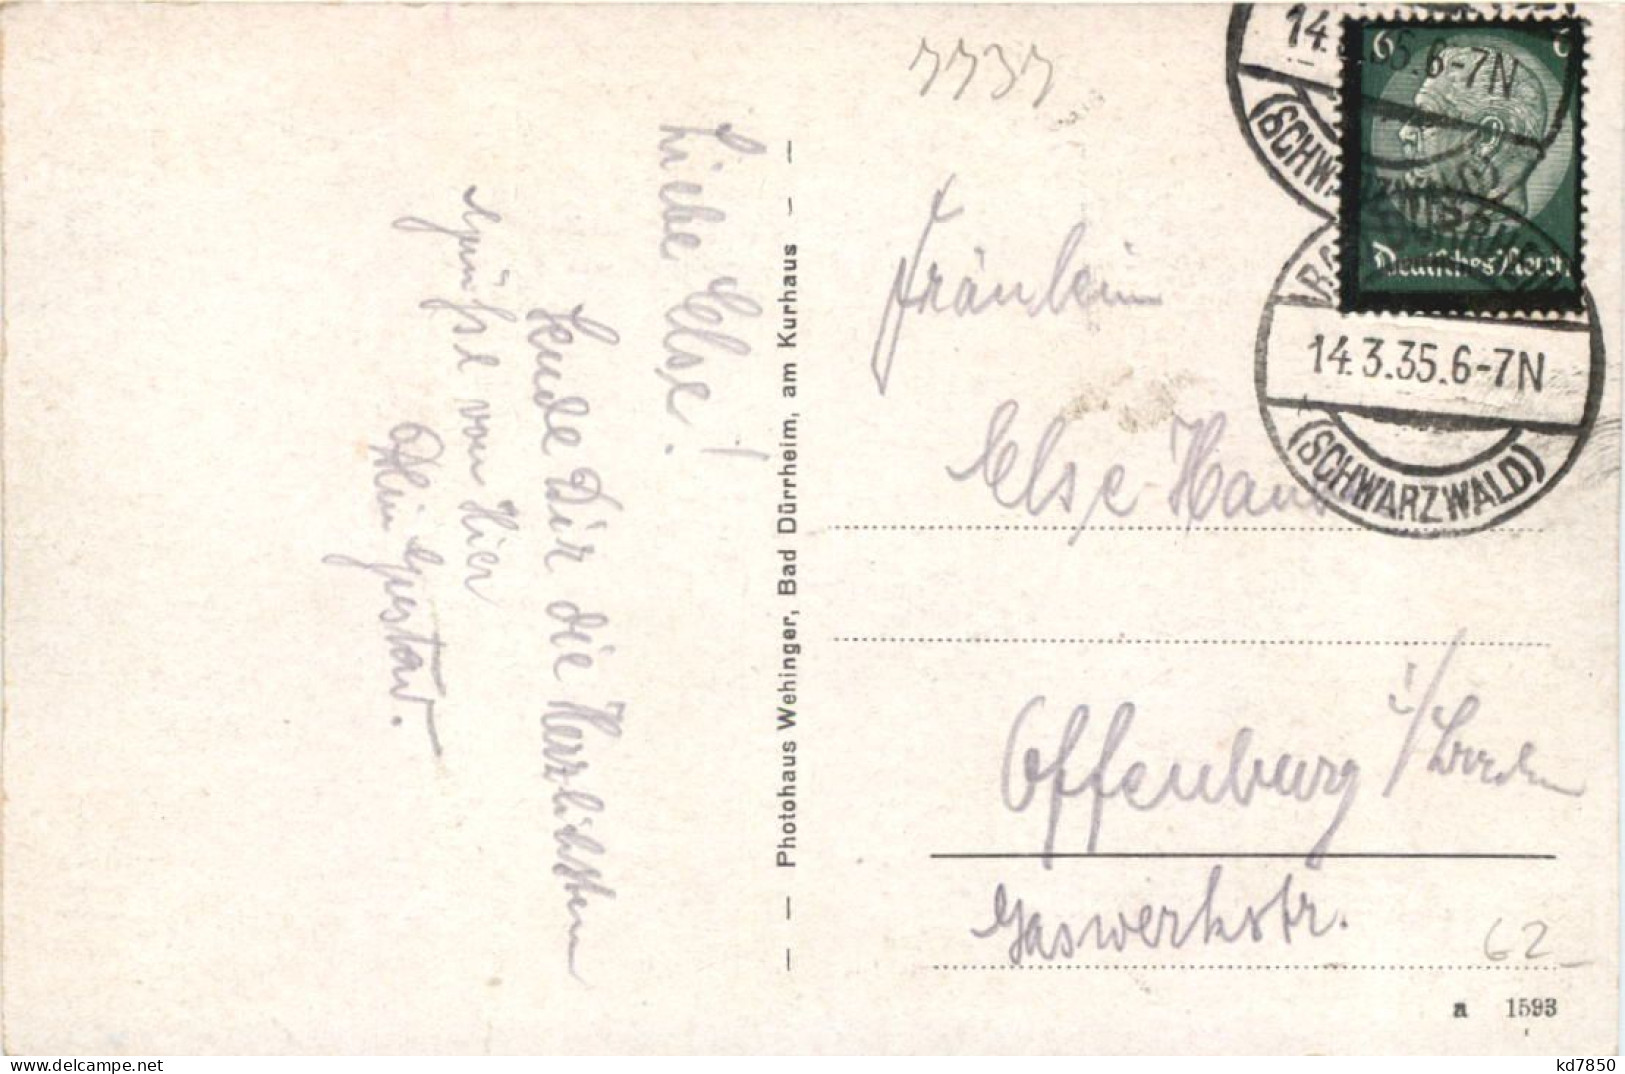 7737
Liebe Else!
Sende Dir die Herzlichsten
Grüße von Hier
Gustav.
— — Photohaus Wehinger, Bad Dürrheim, am Kurhaus — —
6
Deutsches Reich
14.3.35.6-7N
(SCHWARZWALD)
14.3.35.6-7N
(SCHWARZWALD)
Fräulein
Else
Offenburg i/Baden
Gaswerkstr.
62
a 1593
www.delcampe.net
kd7850